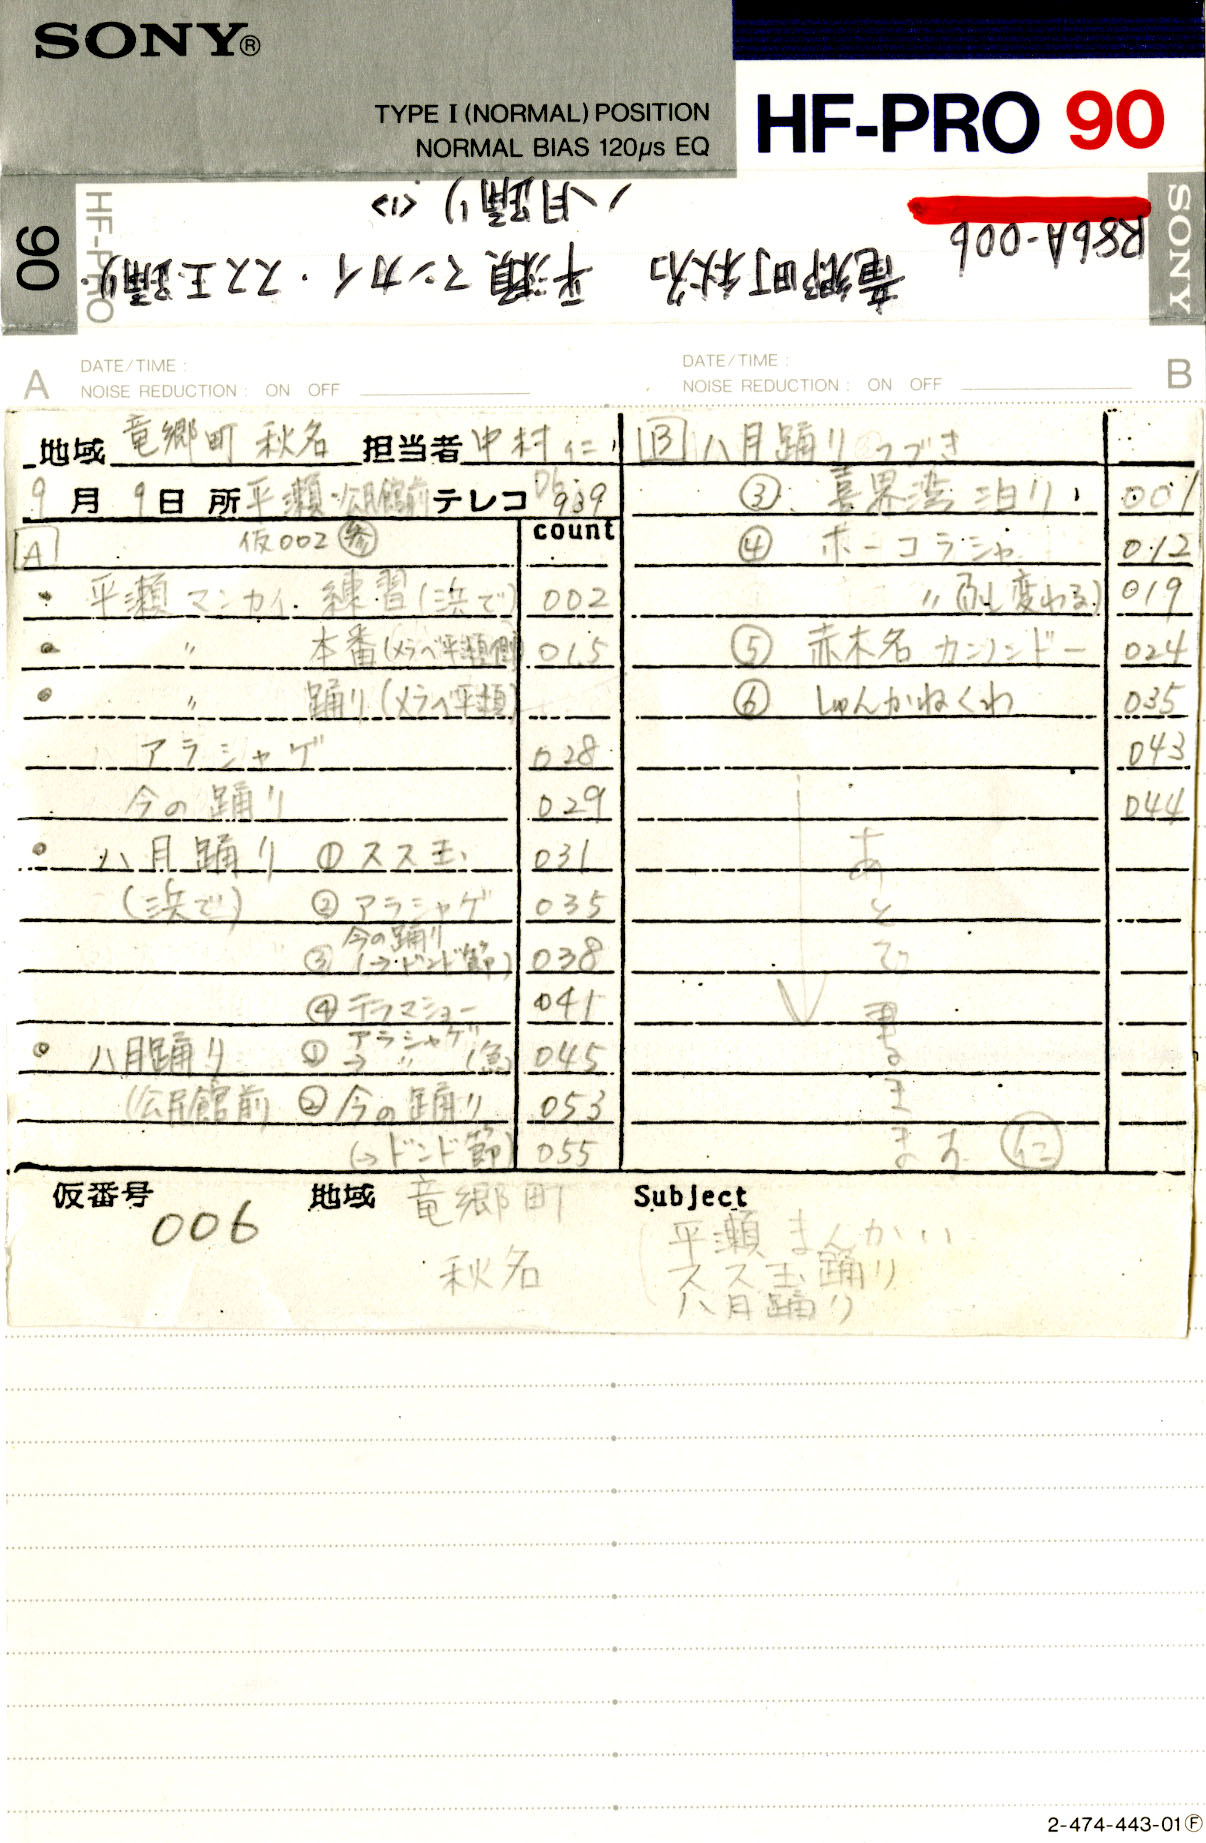 SONY®
TYPE I (NORMAL) POSITION
NORMAL BIAS 120μs EQ
HF-PRO 90
90
HF-PRO
SONY
R86A-006
竜郷町秋名 平瀬マンカイ・スス玉踊り
八月踊り〈1〉
A DATE/TIME :
NOISE REDUCTION : ON OFF
DATE/TIME :
NOISE REDUCTION : ON OFF
B
地域 竜郷町 秋名 担当者 中村仁
9月9日 所 平瀬・公民館前 テレコ 939
count
A 仮002 参
・ 平瀬マンカイ 練習(浜で) 002
・ 〃 本番(メラベ平瀬側) 015
・ 〃 踊り(メラベ平瀬)
アラシャゲ 028
今の踊り 029
・ 八月踊り ①スス玉 031
(浜で) ②アラシャゲ 035
③今の踊り(→ドンド節) 038
④テラマショー 041
・ 八月踊り ①アラシャゲ→〃(急) 045
(公民館前 ②今の踊り 053
(→ドンド節) 055
B 八月踊り つづき
③ 喜界湾泊り 001
④ ホーコラシャ 012
〃 変わる) 019
⑤ 赤木名カンノンドー 024
⑥ しゅんかねくわ 035
043
044
あとで
ます 仁
仮番号 006
地域 竜郷町
秋名
Subject
平瀬まんかい
スス玉踊り
八月踊り
2-474-443-01Ⓕ